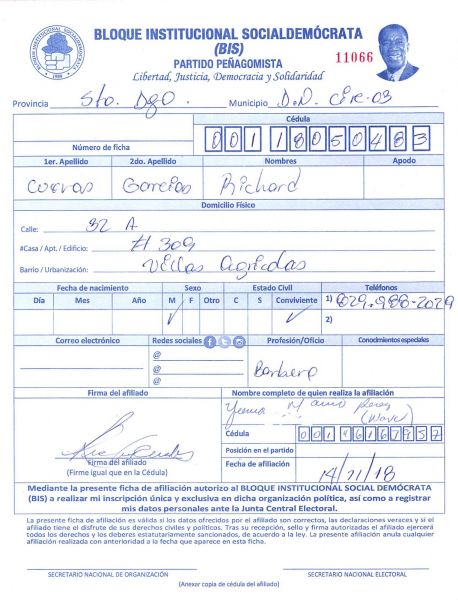 BLOQUE INSTITUCIONAL SOCIALDEMÓCRATA
(BIS)
PARTIDO PEÑAGOMISTA
Libertad, Justicia, Democracia y Solidaridad
11066
Provincia Sto. Dgo. Municipio D.N. Circ. 03
Cédula
Número de ficha 001 1805048 3
1er. Apellido 2do. Apellido Nombres Apodo
Cuevas Richard
Domicilio Físico
Calle: 32 A
#Casa / Apt. / Edificio: # 309
Barrio / Urbanización: Villas Agricolas
Fecha de nacimiento Sexo Estado Civil Teléfonos
Día Mes Año M F Otro C S Conviviente 1) 829-988-2029
2)
Correo electrónico Redes sociales Profesión/Oficio Conocimientos especiales
@
@
@
Barbero
Firma del afiliado Nombre completo de quien realiza la afiliación
Cédula
Posición en el partido
Firma del afiliado
(Firme igual que en la Cédula)
Fecha de afiliación 14/11/18
Mediante la presente ficha de afiliación autorizo al BLOQUE INSTITUCIONAL SOCIAL DEMÓCRATA
(BIS) a realizar mi inscripción única y exclusiva en dicha organización política, así como a registrar
mis datos personales ante la Junta Central Electoral.
La presente ficha de afiliación es válida si los datos ofrecidos por el afiliado son correctos, las declaraciones veraces y si el
afiliado tiene el disfrute de sus derechos civiles y políticos. Tras su recepción, sello y firma autorizadas el afiliado ejercerá
todos los derechos y los deberes estatutariamente sancionados, de acuerdo a la ley. La presente afiliación anula cualquier
afiliación realizada con anterioridad a la fecha que aparece en esta ficha.
SECRETARIO NACIONAL DE ORGANIZACIÓN SECRETARIO NACIONAL ELECTORAL
(Anexar copia de cédula del afiliado)